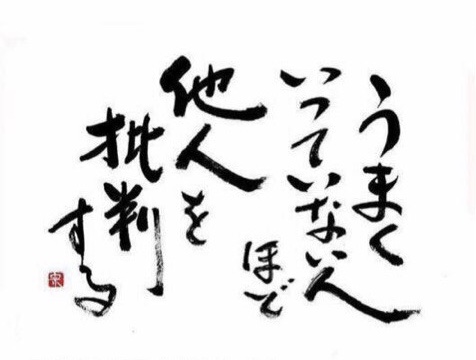 うまく
いっていない人
ほど
他人を
批判
する